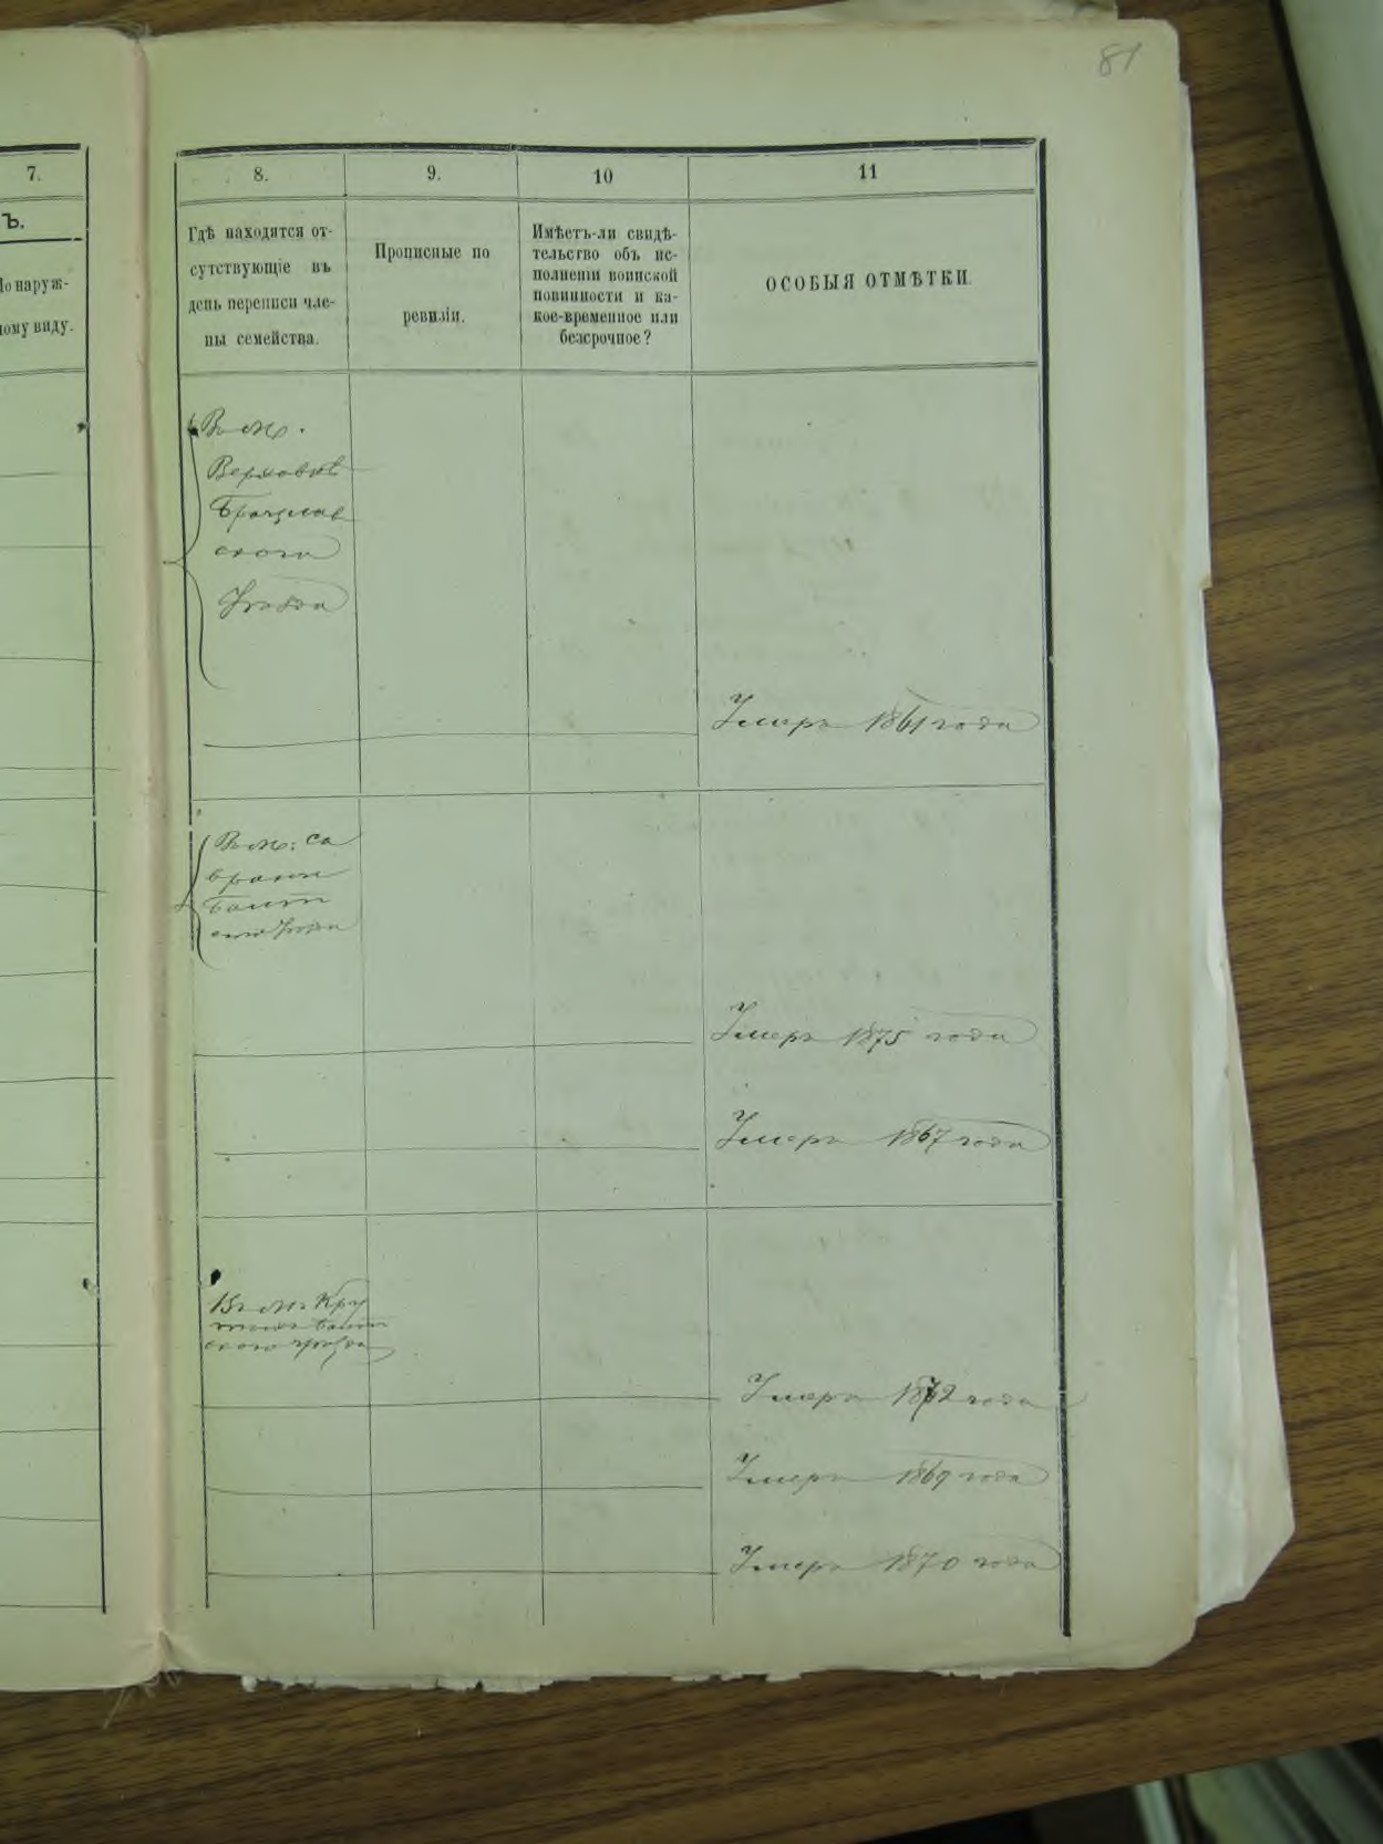 81
7.
8.
9.
10
11
Ъ.
По наруж-
ному виду.
Гдѣ находятся от-
сутствующіе въ
день переписи чле-
ны семейства.
Прописные по
ревизіи.
Имѣетъ-ли свидѣ-
тельство объ ис-
полненіи воинской
повинности и ка-
кое-временное или
безсрочное?
ОСОБЫЯ ОТМѢТКИ.
Въ м.
Верховкѣ
Брацлав
скаго
Уѣзда
Умеръ 1861 года
Въ м: Са
врани
Балт
Уѣзда
Умеръ 1875 года
Умеръ 1867 года
Въ м. Кру
тыхъ Балт
скаго уѣзда
Умеръ 1872 года
Умеръ 1869 года
Умеръ 1870 года